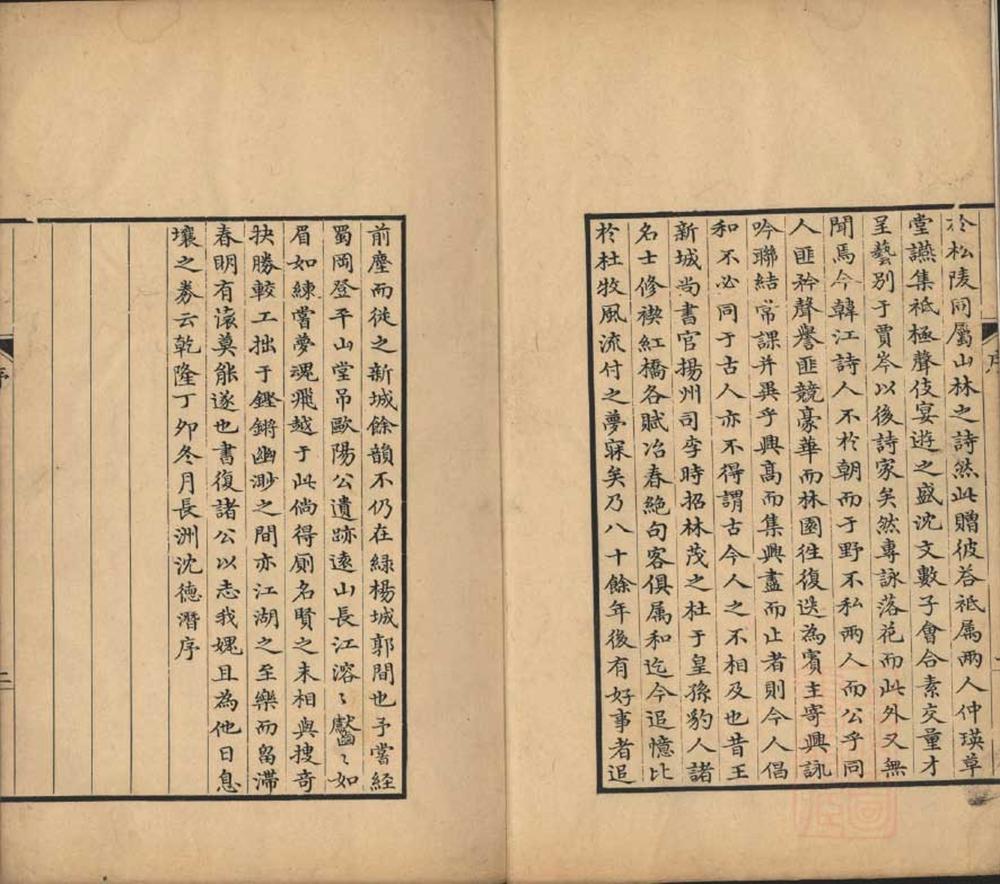 於松陵同屬山林之詩然此贈彼荅祗屬兩人仲瑛草
堂讌集祗極聲伎宴遊之盛沈文數子會合素交量才
呈藝別于賈岑以後詩家矣然專詠落花而此外又無
聞焉今韓江詩人不於朝而于野不私兩人而公乎同
人匪矜聲譽匪競豪華而林園徃復迭為賓主寄興詠
吟聯結常課并異乎興髙而集興盡而止者則今人倡
和不必同于古人亦不得謂古今人之不相及也昔王
新城尚書官揚州司李時招林茂之杜于皇孫豹人諸
名士修禊紅橋各賦冶春絶句客俱属和迄今追憶比
於杜牧風流付之夢寐矣乃八十餘年後有好事者追
前塵而従之新城餘韻不仍在緑楊城郭間也予嘗経
蜀岡登平山堂吊歐陽公遺跡遠山長江溶〻䶩〻如
眉如練嘗夢魂飛越于此倘得廁名賢之末相與搜奇
抉勝較工拙于鏗鏘幽渺之間亦江湖之至樂而留滯
春明有懷莫能遂也書復諸公以志我媿且為他日息
壤之券云乾隆丁夘冬月長洲沈德潛序
序
序
二